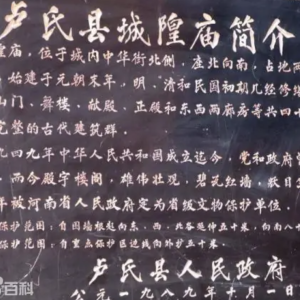 卢氏县城隍庙简介
隍庙，位于城内中华街北侧，座北向南，占地面
始建于元朝末年，明、清和民国初期几经修缮
山门、舞楼、献殿、正殿和东西两廊房等共四十
完整的古代建筑群。
九四九年中华人民共和国成立迄今，党和政府
，而今殿宇楼阁，雄伟壮观，碧瓦红墙，耿目
年被河南省人民政府定为省级文物保护单位，
保护范围：自围墙根起向东、西、北各延伸五十米，向南八十
范围：自重点保护区边线向外扩五十米。
卢氏县人民政府
公元一九八九年十月一日
百科